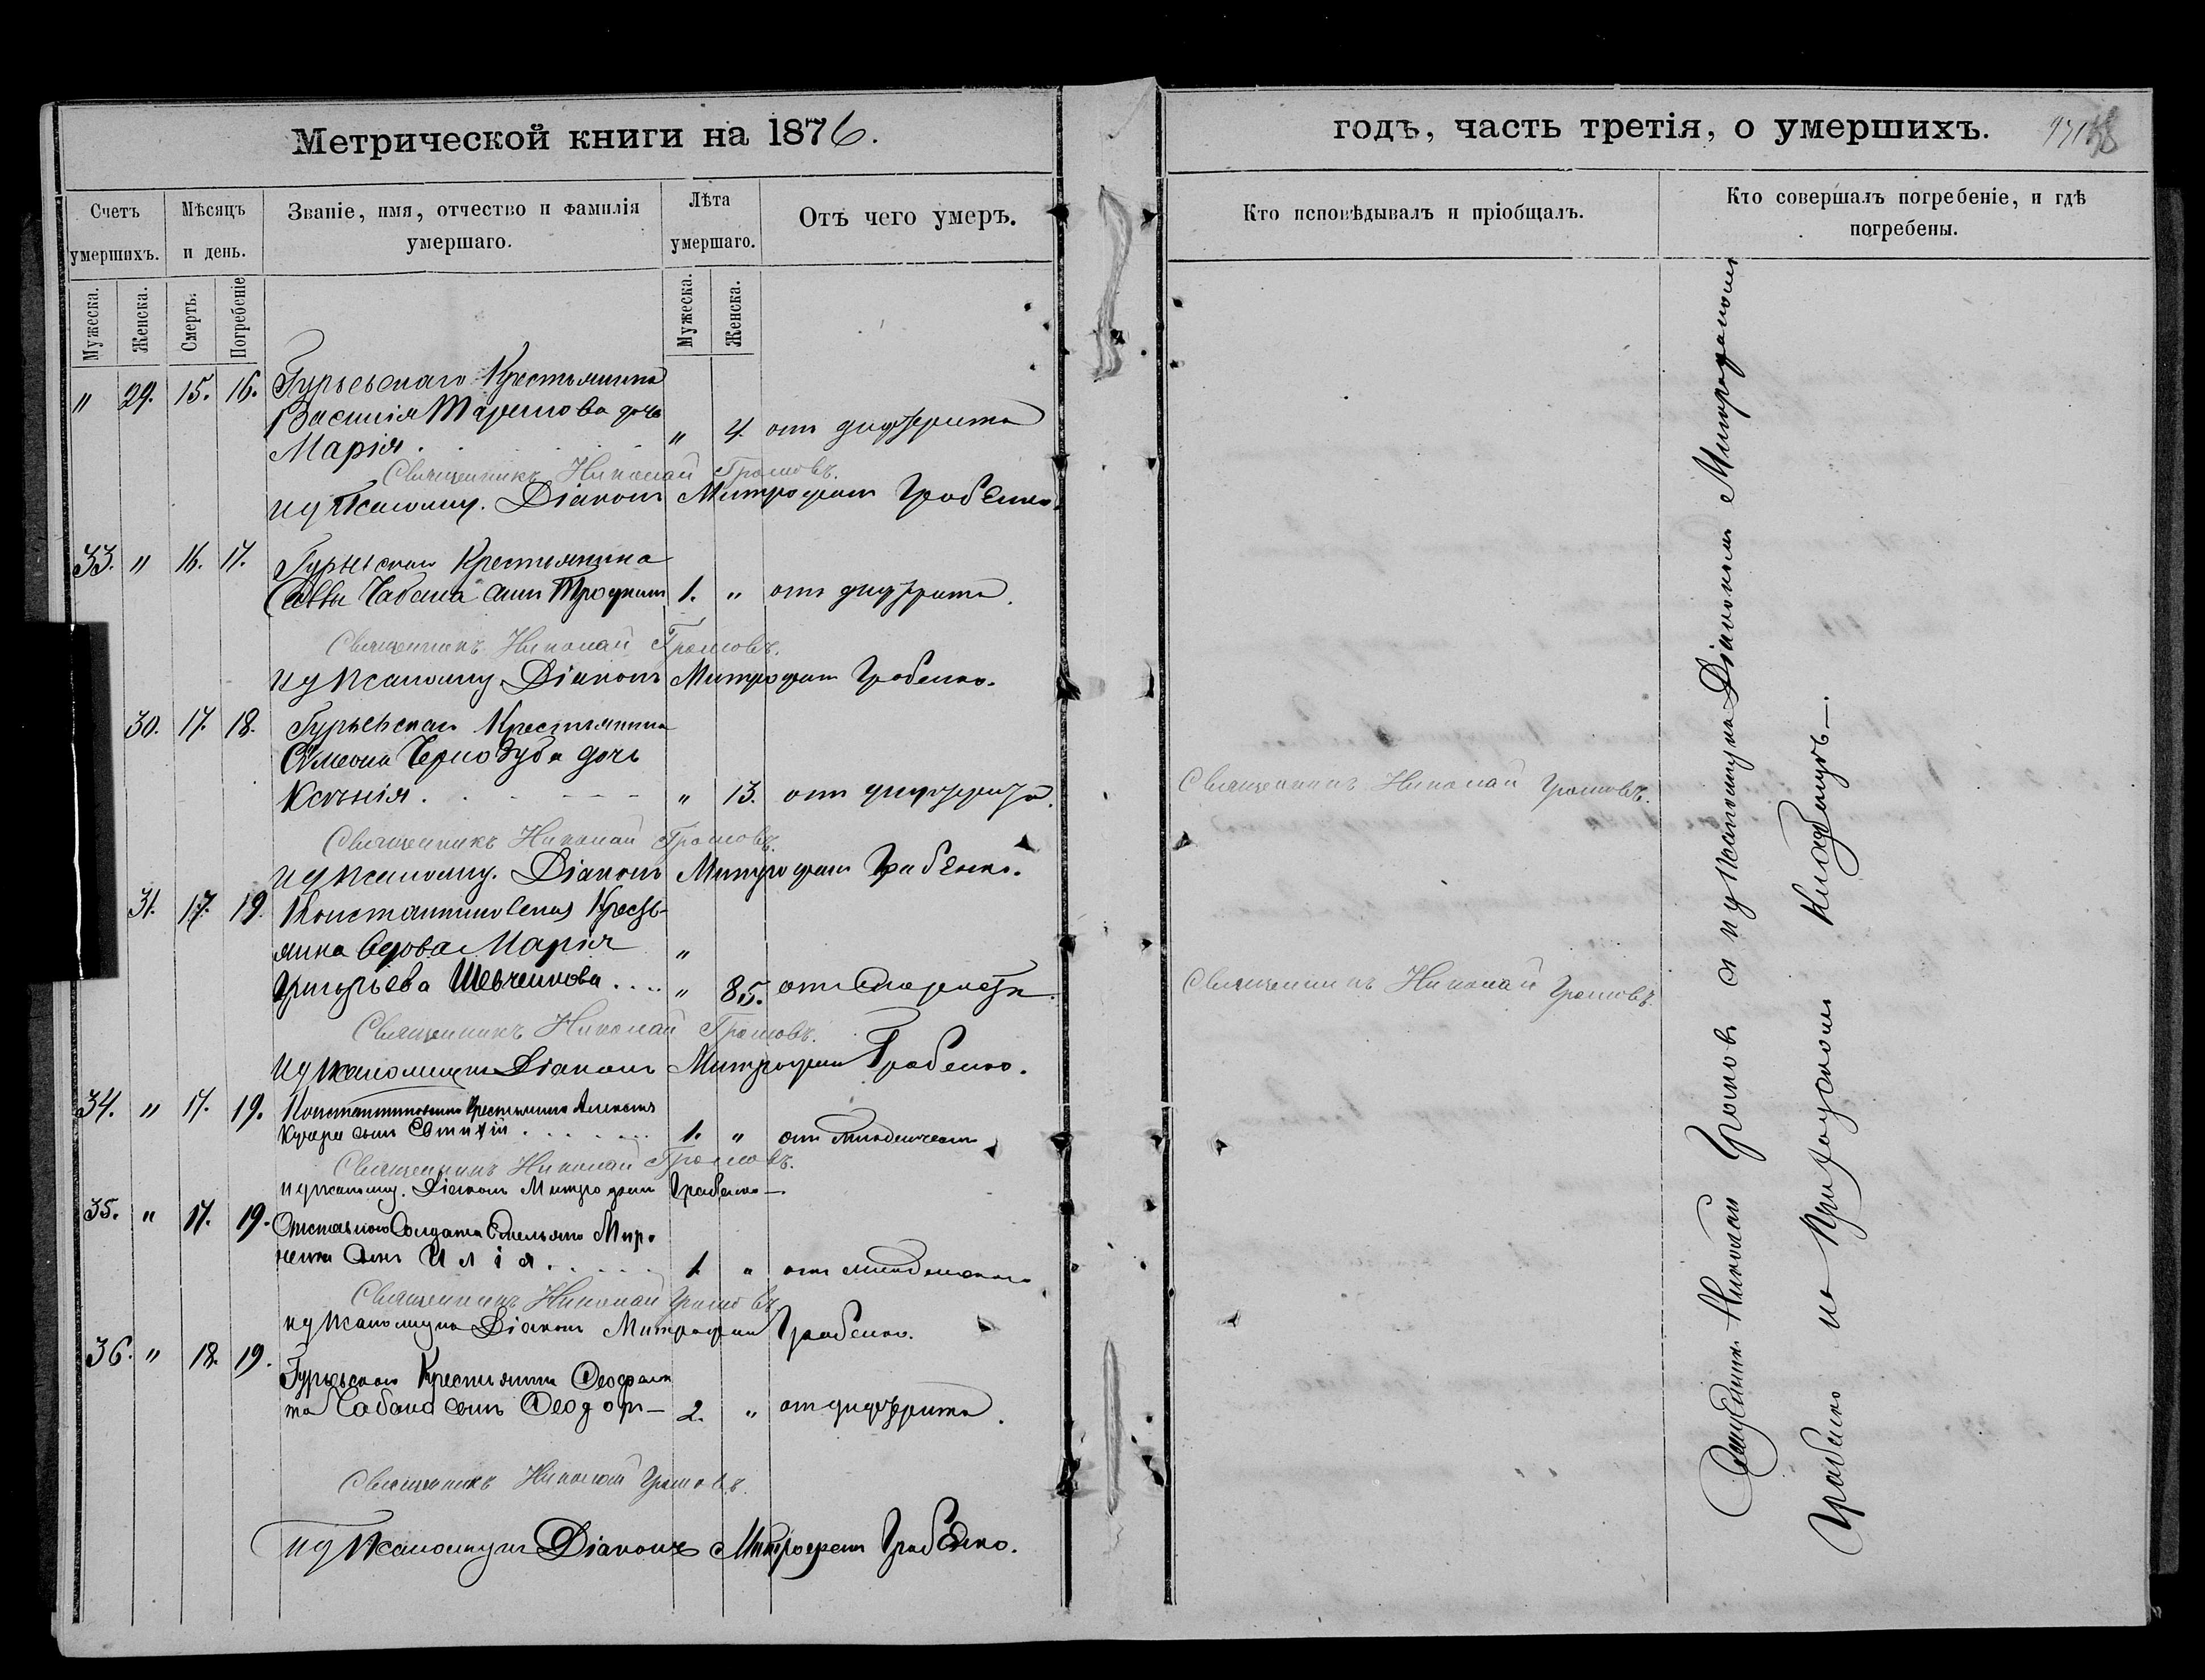 Метрической книги на 1876.
годъ, часть третія, о умершихъ.
Счетъ умершихъ.
Мѣсяцъ и день.
Званіе, имя, отчество и фамилія умершаго.
Лѣта умершаго.
Отъ чего умеръ.
Кто исповѣдывалъ и пріобщалъ.
Кто совершалъ погребеніе, и гдѣ погребены.
Мужеска. Женска. Смерть. Погребеніе Мужеска. Женска.
" 29. 15. 16. Гурьевскаго Крестьянина
Василія дочь
Марія. " 4. отъ дифтерита
Священникъ Николай Громовъ.
и д Псаломщ. Діаконъ Митрофанъ Грабенко.
33. " 16. 17. Гурьевскаго Крестьянина
Саввы Чабана сынъ Трофимъ 1. " отъ дифтерита.
Священникъ Николай Громовъ.
и д Псаломщ. Діаконъ Митрофанъ Грабенко.
30. 17. 18. Гурьевскаго Крестьянина
Симеона Чернозуба дочь
Ксенія. " 13. отъ дифтерита. Священникъ Николай Громовъ.
Священникъ Николай Громовъ.
и д Псаломщ. Діаконъ Митрофанъ Грабенко.
31. 17. 19. Константиновскаго Кресть-
янина вдова Марія "
Григорьева Шевченкова.... " 85. отъ старости. Священникъ Николай Громовъ.
Священникъ Николай Громовъ.
и д Псаломщика Діаконъ Митрофанъ Грабенко.
34. " 17. 19. Константиновскаго Крестьянина Алексѣя
Кучера сынъ Евтихій 1. " отъ младенческ.
Священникъ Николай Громовъ.
и д Псаломщ. Діаконъ Митрофанъ Грабенко.
35. " 17. 19. Отставного Солдата Емельяна Миро-
ненка сынъ Илія. 1 " отъ младенческаго
Священникъ Николай Громовъ.
и д Псаломщика Діаконъ Митрофанъ Грабенко.
36. " 18. 19. Гурьевскаго Крестьянина Феофан
та Чабана сынъ Феодоръ 2. " отъ дифтерита.
Священникъ Николай Громовъ.
и д Псаломщика Діаконъ Митрофанъ Грабенко.
Священникъ Николай Громовъ и д Псаломщика Діакономъ Митрофаномъ
Грабенко на Приходскомъ Кладбищѣ.